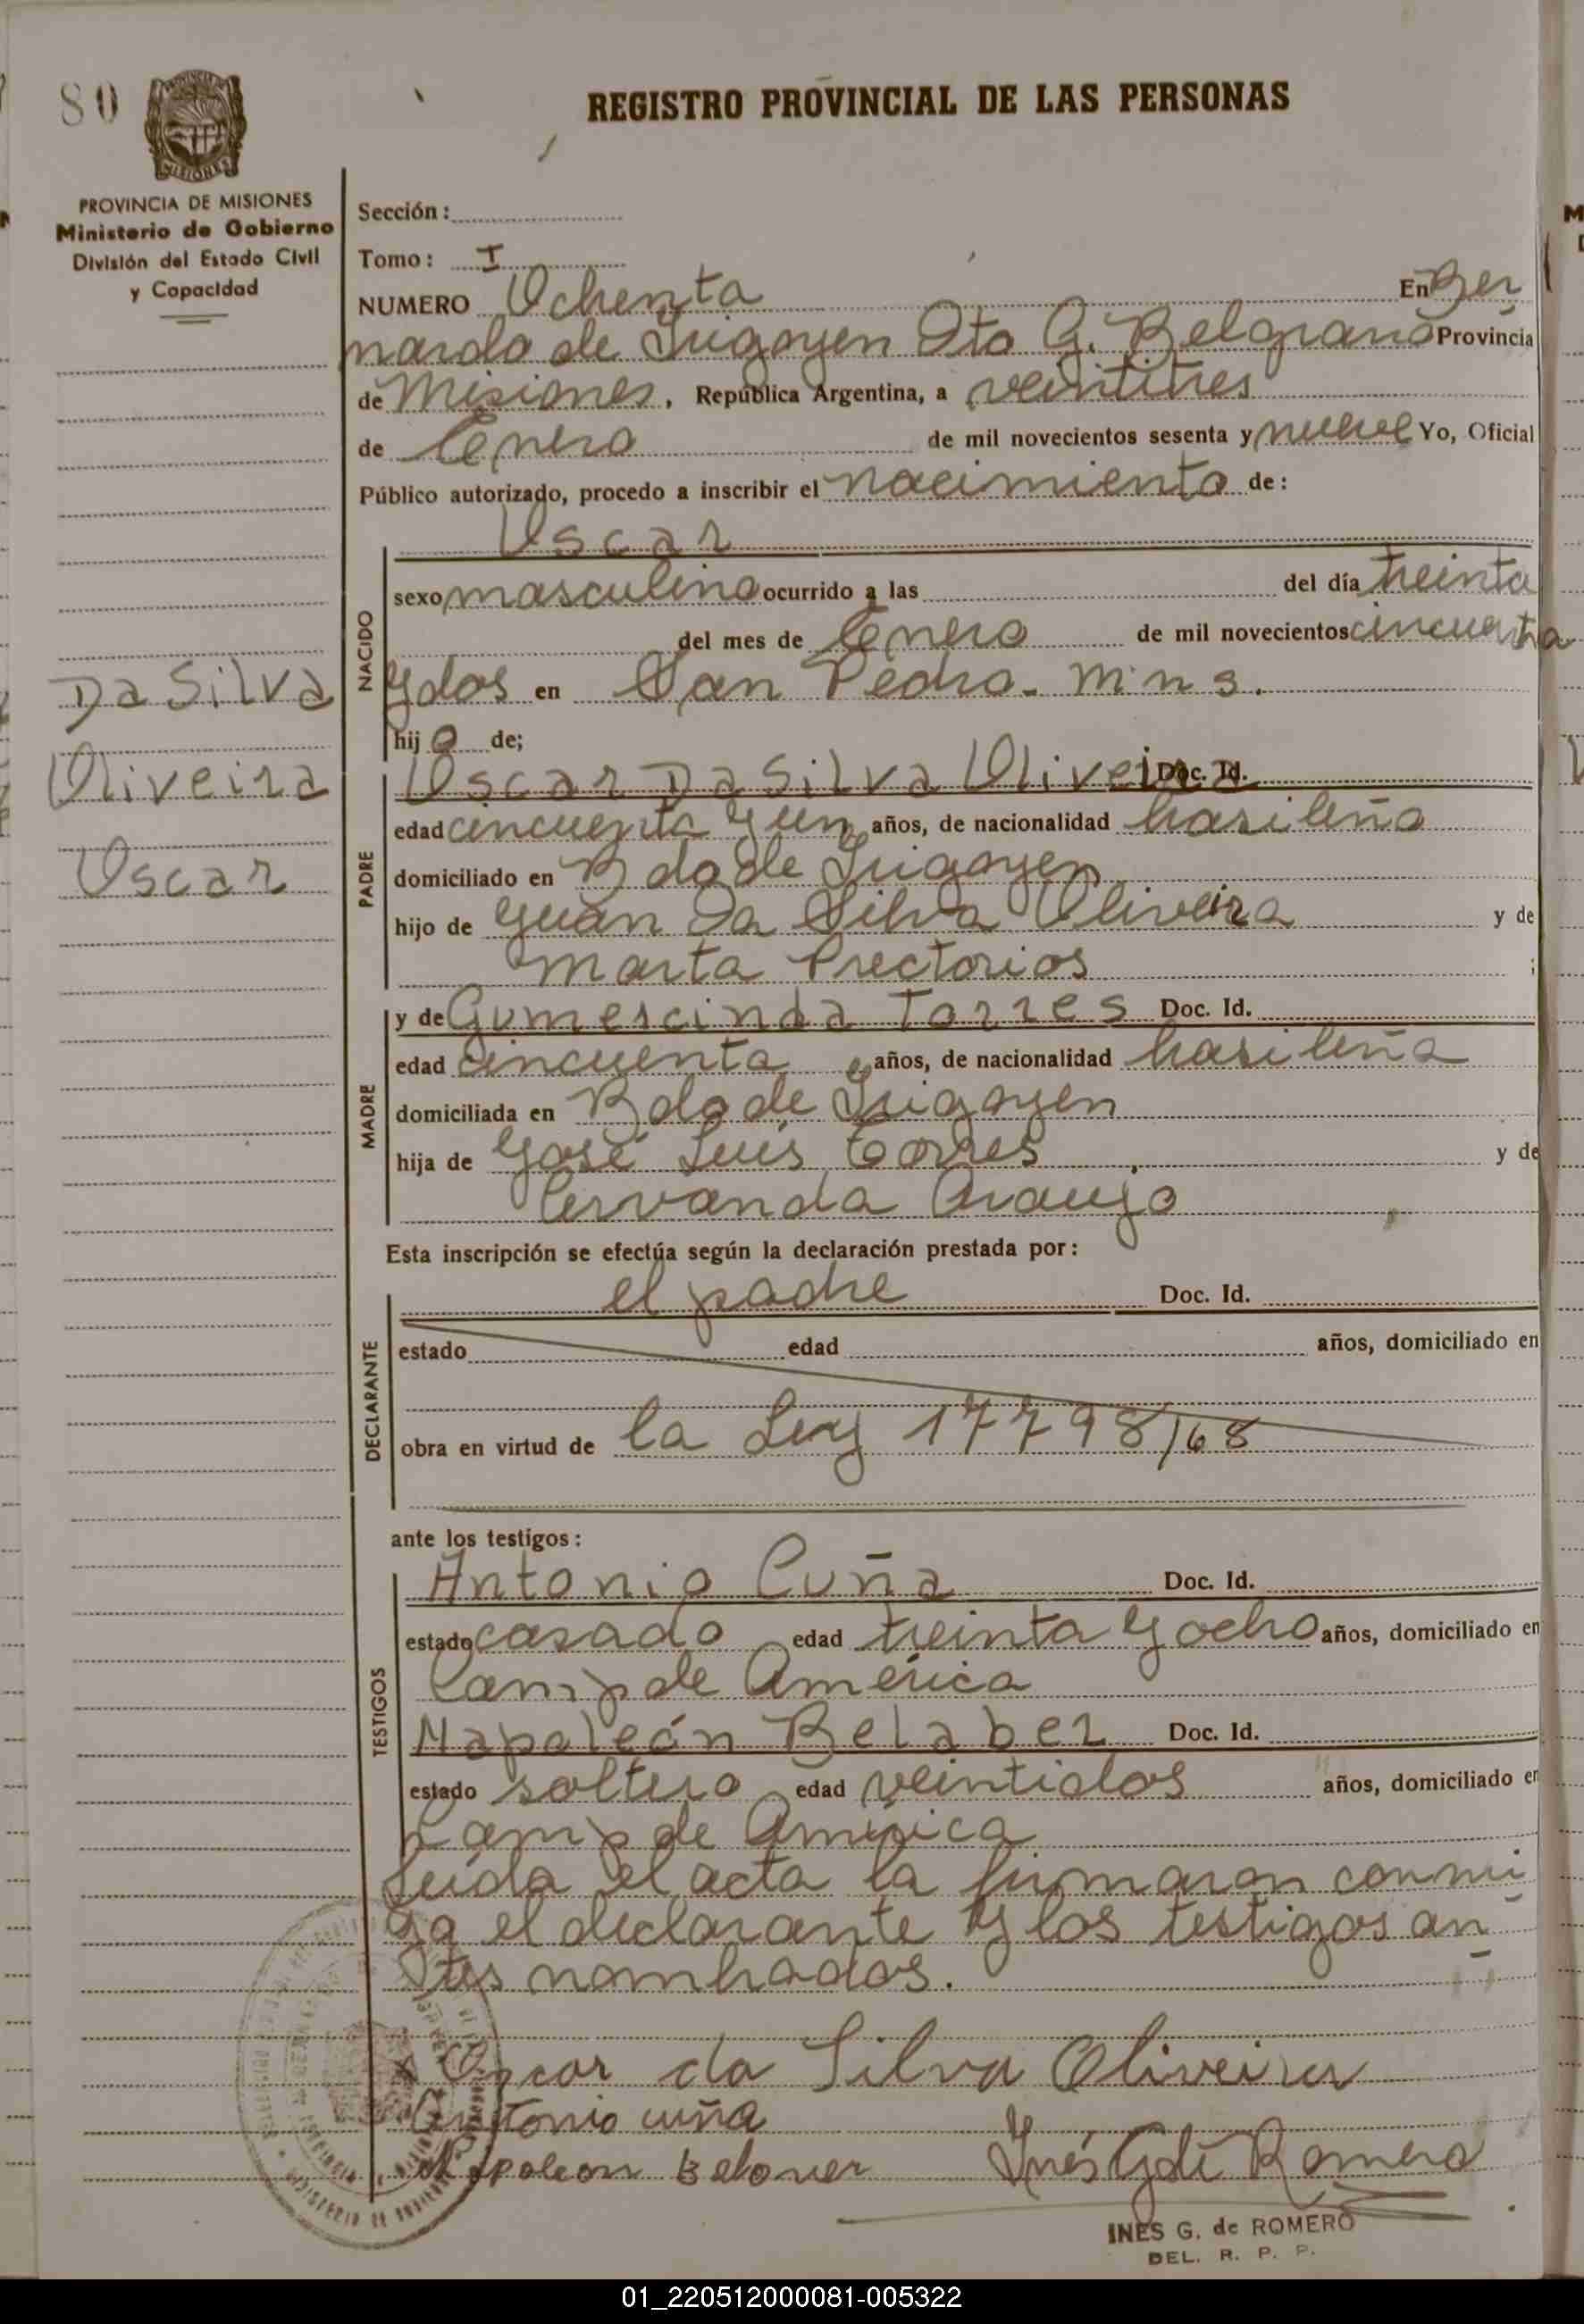 80
REGISTRO PROVINCIAL DE LAS PERSONAS
PROVINCIA DE MISIONES
Ministerio de Gobierno
División del Estado Civil
y Capacidad
Sección :
Tomo : I
NUMERO Ochenta En Ber
nardo de Irigoyen Dto G. Belgrano Provincia
de Misiones, República Argentina, a veintitres
de Enero de mil novecientos sesenta y nueve Yo, Oficial
Público autorizado, procedo a inscribir el nacimiento de :
Oscar
NACIDO
sexo masculino ocurrido a las del día treinta
del mes de Enero de mil novecientos cincuenta
y dos en San Pedro - Mns.
hijo de;
Da Silva
Oliveira
Oscar
PADRE
Oscar Da Silva Oliveira Doc. Id.
edad cincuenta y un años, de nacionalidad brasileño
domiciliado en Bdo de Irigoyen
hijo de Juan Da Silva Oliveira y de
Marta Prectorios ;
MADRE
y de Gumercinda Torres Doc. Id.
edad cincuenta años, de nacionalidad brasileña
domiciliada en Bdo de Irigoyen
hija de José Luis Torres y de
Cervanda Araujo
Esta inscripción se efectúa según la declaración prestada por :
DECLARANTE
el padre Doc. Id.
estado edad años, domiciliado en
obra en virtud de la Ley 17798/68
ante los testigos :
TESTIGOS
Antonio Cuña Doc. Id.
estado casado edad treinta y ocho años, domiciliado en
Camp de América
Napoleón Belaber Doc. Id.
estado soltero edad veintidos años, domiciliado en
Camp de América
Leída el acta la firmaron conmi
go el declarante y los testigos an
tes nombrados.
x Oscar da Silva Oliveira
Antonio cuña
Napoleon Belover Inés G de Romero
INES G. de ROMERO
DEL. R. P. P.
01_220512000081-005322